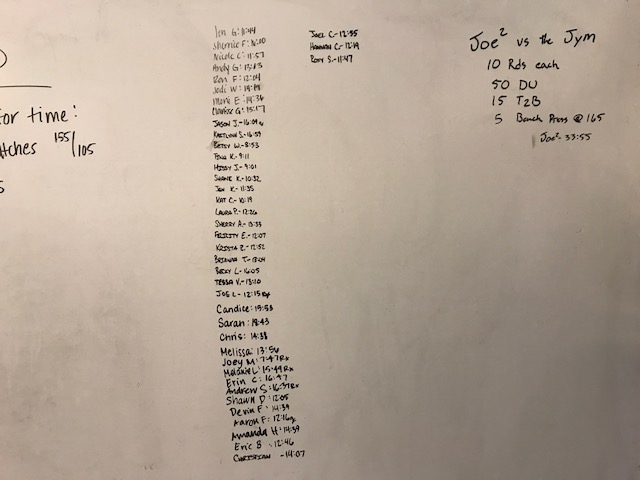 for time:
155/105
Ian G: 11:44
Sherrie F: 16:00
Nicole C: 11:57
Andy G: 13:13
Ron F: 12:04
Jodi W: 14:14
Marie E: 14:36
G: 15:17
JASON J.- 16:04
KAITLYNN S.- 16:59
BETSY W.- 8:53
TINA K.- 9:11
MISSY J.- 9:01
SHANE K.- 10:32
JEN K.- 11:35
KAT C.- 10:19
LAURA P.- 12:26
SHERRY A.- 13:33
FELICITY E.- 12:07
KRISTA Z.- 12:52
BRIANNA T.- 13:04
BECKY L- 16:05
TESSA V.- 13:10
JOE L- 12:15 Rx
Candice: 15:53
Sarah: 18:43
Chris: 14:38
Melissa: 13:56
Joey M: 7:47 Rx
Melanie L: 15:49 Rx
Erin C: 16:47
Andrew S: 16:37 Rx
Shawn D: 12:05
Devin F: 14:39
Aaron F: 12:16
Amanda H: 14:39
Eric B: 12:46
CHRISTIAN - 14:07
JOEL C.- 12:55
HANNAH C- 12:19
RORY S.- 11:47
Joe² vs the Jym
10 Rds each
50 DU
15 T2B
5 Bench Press @ 165
Joe²- 33:55